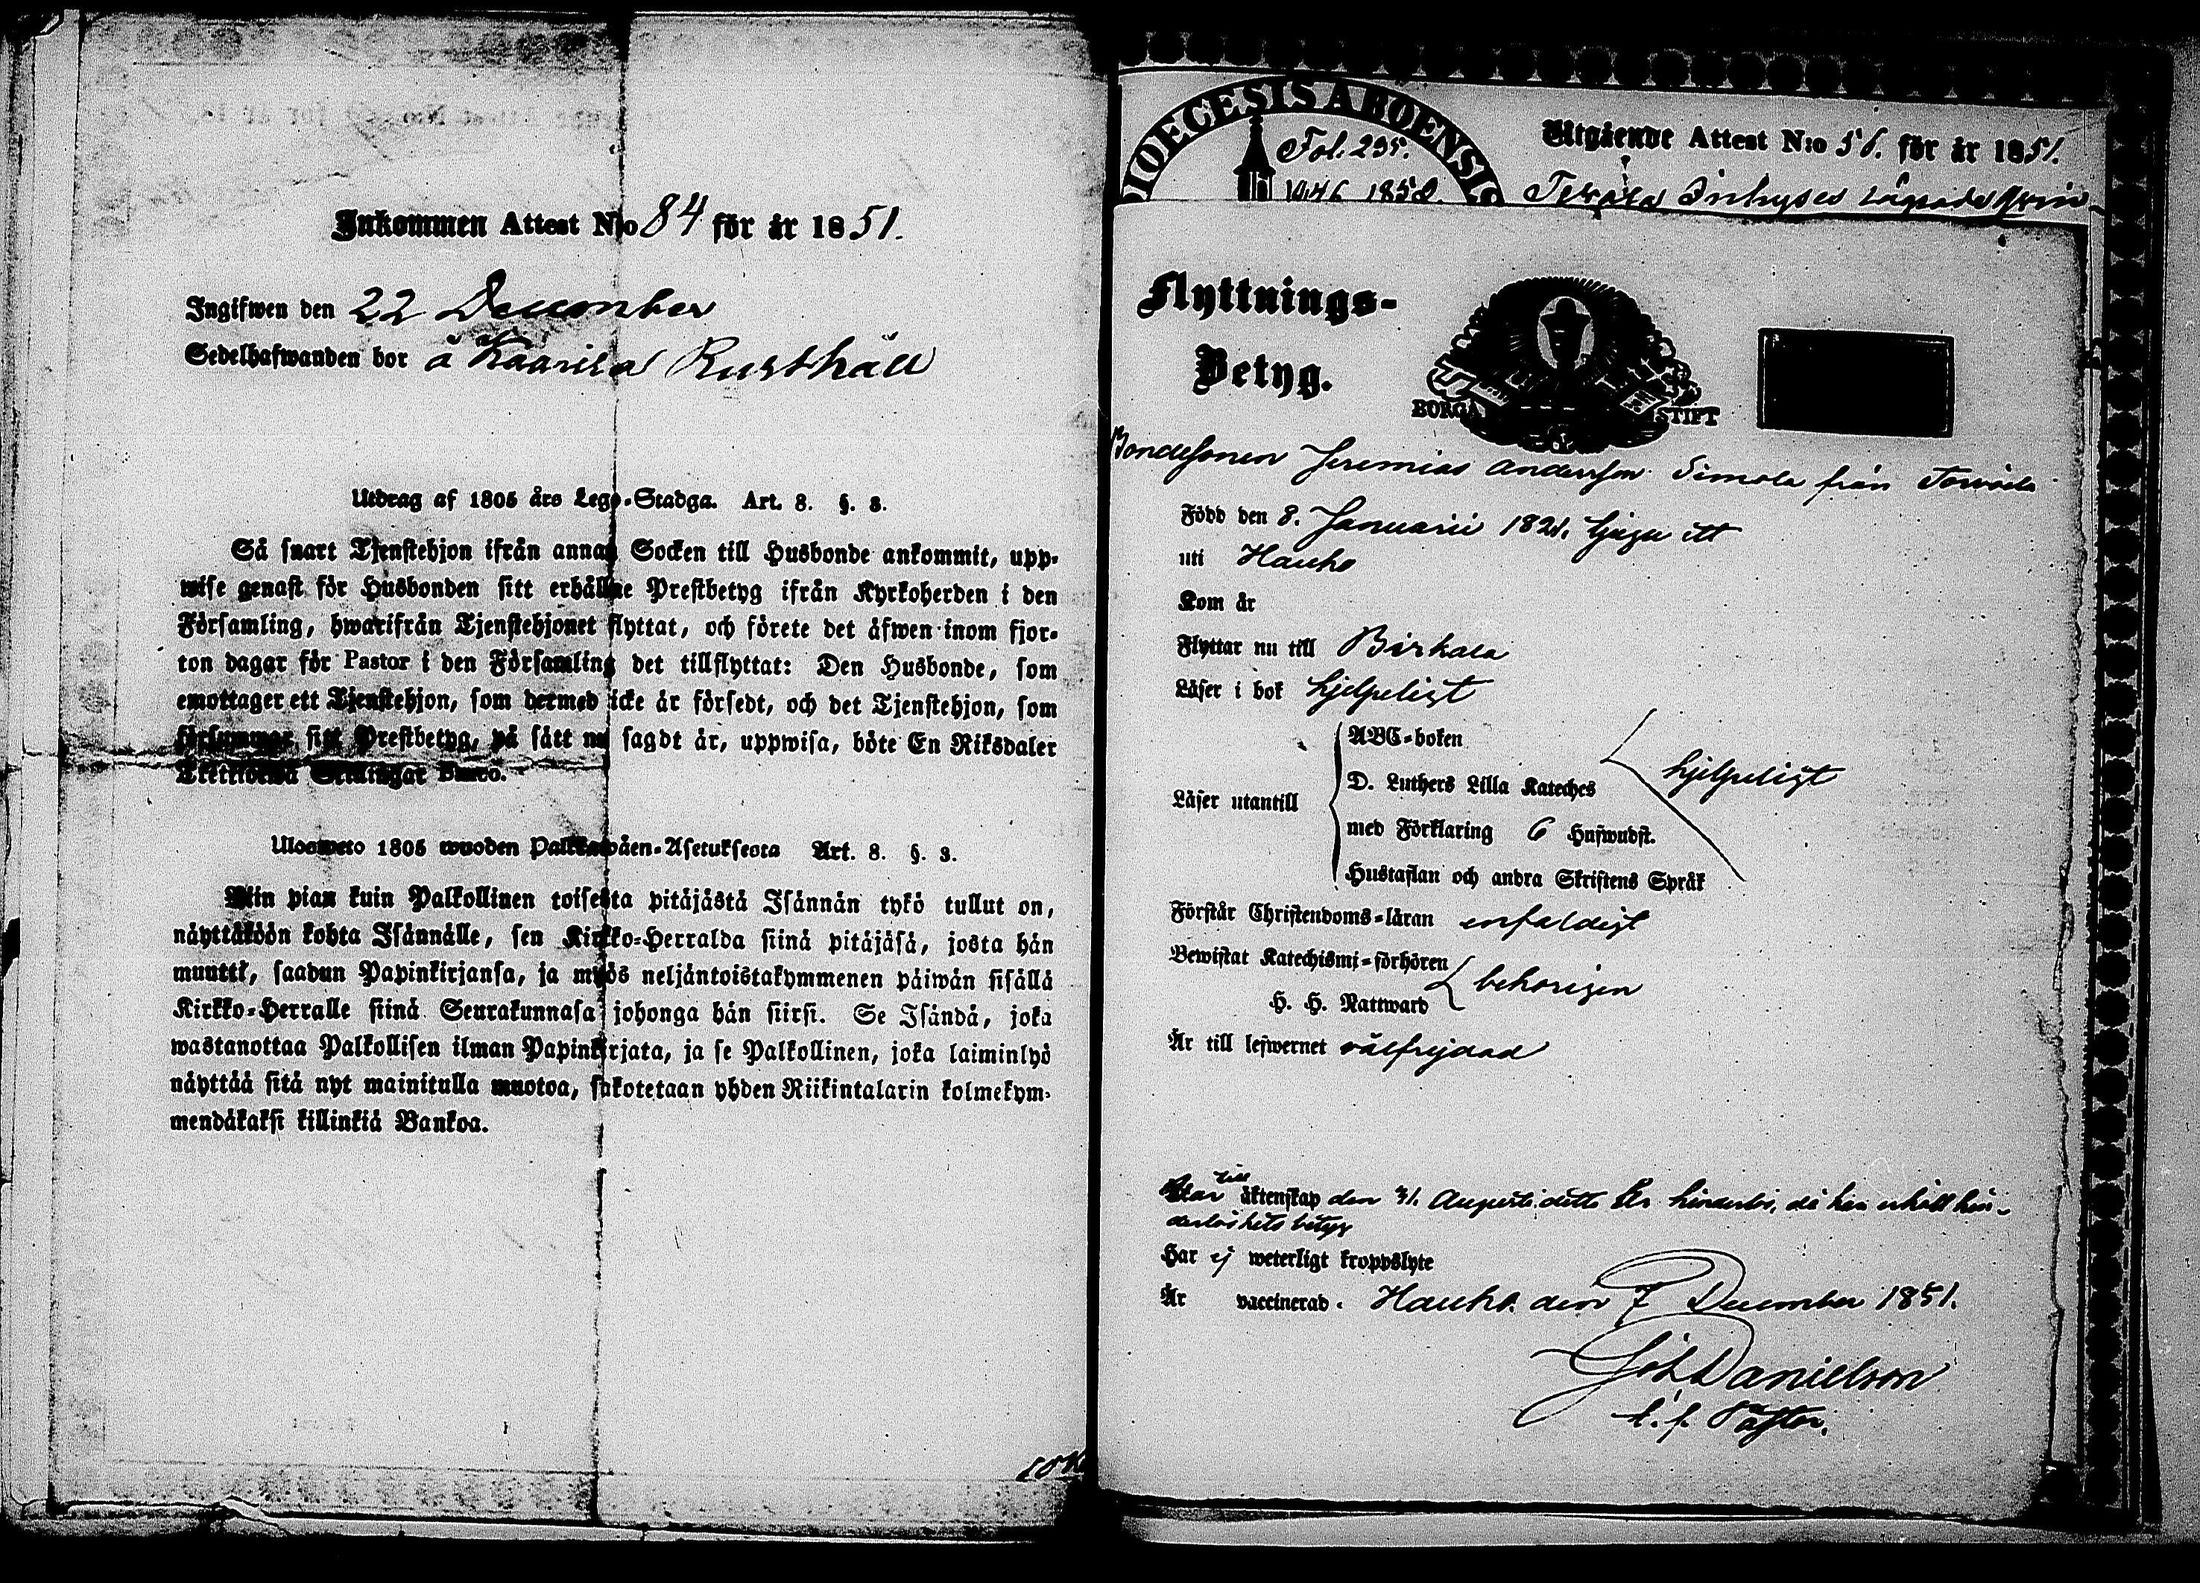 Inkommen Attest N:o 84 för år 1851.
Ingifwen den 22 December
Sedelhafwanden bor å Kaarila Rusthåll
Utdrag af 1805 års Lego-Stadga. Art. 8. §. 3.
Så snart Tjenstehjon ifrån annan Socken till Husbonde ankommit, upp-
wise genast för Husbonden sitt erhållne Prestbetyg ifrån Kyrkoherden i den
Församling, hwarifrån Tjenstehjonet flyttat, och förete det äfwen inom fjor-
ton dagar för Pastor i den Församling det tillflyttat: Den Husbonde, som
emottager ett Tjenstehjon, som dermed icke är försedt, och det Tjenstehjon, som
försummar sitt Prestbetyg, på sätt nu sagdt är, uppwisa, böte En Riksdaler
Trettiotwå Skillingar Banco.
Ulosweto 1805 wuoden Palkkawäen-Asetuksesta Art. 8. §. 3.
Niin pian kuin Palkollinen toisesta pitäjästä Isännän tykö tullut on,
näyttäköön kohta Isännälle, sen Kirkko-Herralda siinä pitäjäsä, josta hän
muutti, saadun Papinkirjansa, ja myös neljäntoistakymmenen päiwän sisällä
Kirkko-Herralle siinä Seurakunnasa johonga hän siirsi. Se Isändä, joka
wastanottaa Palkollisen ilman Papinkirjata, ja se Palkollinen, joka laiminlyö
näyttää sitä nyt mainitulla muotoa, sakotetaan yhden Riikintalarin kolmekym-
mendäkaksi killinkiä Bankoa.
DIOECESIS ABOENSIS
Fol. 295.
1846 1852.
Utgående Attest N:o 56. för år 1851.
Inhyses
Flyttnings-
Betyg.
BORGÅ STIFT
Bondesonen Jeremias Andersson Simola från
Född den 8. Januarii 1821. tjugu ett
uti Hauho
Kom år
Flyttar nu till Birkala
Läser i bok hjelpeligt
Läser utantill
ABC-boken
D. Luthers Lilla Kateches
med Förklaring 6 Hufwudst.
Hustaflan och andra Skriftens Språk
hjelpeligt
Förstår Christendoms-läran enfaldigt
Bewistat Katechismi-förhören
H. H. Nattward
behörigen
Är till lefwernet välfrejdad
Var till äktenskap den 31. Augusti detta år hinderlös, då han erhållt hin-
derlöshets betyg
Har ej weterligt kroppslyte
Är vaccinerad. Hauho den 7 December 1851.
Joh Danielson
t. f. Pastor.